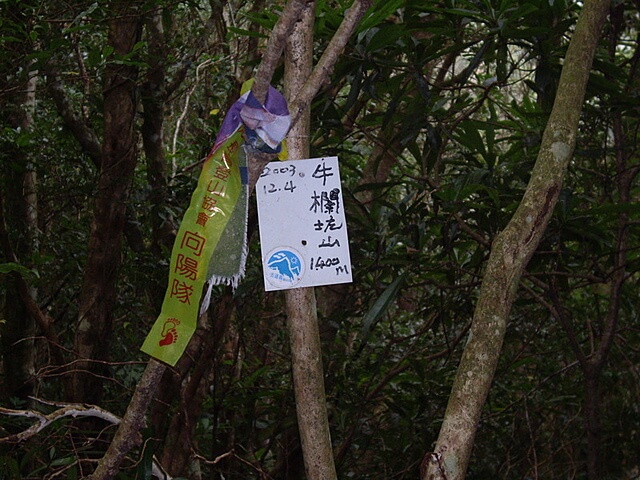 登山協會
向陽隊
2003
12.4
牛
欄
坑
山
1400
m